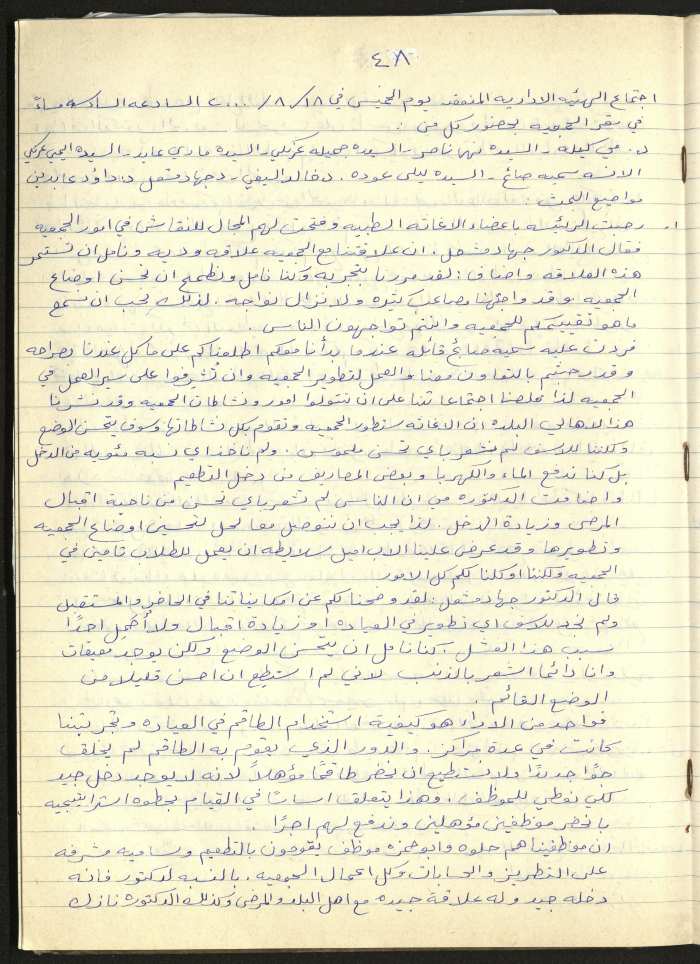 ٤٨
اجتماع الهيئه الاداريه المنعقد يوم الخميس في ١٨/ ٨/ ٢٠٠٠ الساعه السادسه مساءً
في مقر الجمعيه بحضور كل من :
د. مي كيله - السيده نهى ناصر - السيده جميله عزيكي - السيده ماري عابد - السيده اليس عزيكي
الانسه سميه صائغ - السيده ليلى عوده . د خالد السيفي - د جهاد مشعل د. داؤد عابدين
مواضيع البحث :
١. رحبت الرئيسه باعضاء الاغاثه الطبيه وفتحت لهم المجال للنقاش في امور الجمعيه
فقال الدكتور جهاد مشعل . ان علاقتنا مع الجمعيه علاقه وديه ونامل ان تستمر
هذه العلاقه واضاف : لقد مررنا بتجربه وكنا نامل ونطمح ان تحسن اوضاع
الجمعيه . وقد واجهتنا مصاعب كثيره ولا نزال نواجه . لذلك يجب ان نسمع
ما هو تقييمكم للجمعيه وانتم تواجهون الناس .
فردت عليه سميه صائغ قائله عندما بدأنا معكم اطلعناكم على ما كل عندنا بصراحه
وقد رحبتم بالتعاون معنا والعمل لتطوير الجمعيه وان تُشرفوا على سير العمل في
الجمعيه لذا قلصنا اجتماعاتنا على ان تتولوا امور ونشاطات الجمعيه وقد نشرنا
هذا لاهالي البلده ان الاغاثه ستطور الجمعيه وتقوم بكل نشاطاتها وسوف يتحسن الوضع
ولكننا للاسف لم نشعر باي تحسن ملموس . ولم ناخذ اي نسبه مئويه من الدخل
بل كنا ندفع الماء والكهربا وبعض المصاريف من دخل التطعيم
واضافت الدكتوره مي ان الناس لم تشعر باي تحسن من ناحية اقبال
المرضى وزيادة الدخل . لذا يجب ان نتوصل معا لحل لتحسين اوضاع الجمعيه
وتطويرها وقد عرض علينا الاب اميل سلايطه ان يعمل للطلاب تامين في
الجمعيه ولكننا اوكلنا لكم كل الامور
قال الدكتور جهاد مشعل : لقد وضحنا لكم عن امكانياتنا في الحاضر والمستقبل
ولم نجد للاسف اي تطوير في العياده او زيادة اقبال ولا أُحمِل احدًا
سبب هذا الفشل . كنا نامل ان يتحسن الوضع ولكن يوجد معيقات
وانا دائما اشعر بالذنب لاني لم استطع ان احسن قليلا من
الوضع القائم .
فواحد من الاراء هو كيفية استخدام الطاقم في العياده وتجربتنا
كانت في عدة مراكز . والدور الذي يقوم به الطاقم لم يخلق
جوًا جديدًا ولا نستطيع ان نحضر طاقمًا مؤهلاً لانه لا يوجد دخل جيد
لكي نعطي للموظف . وهذا يتعلق اساسًا في القيام بخطوه استراتيجيه
بان نحضر موظفين مؤهلين وندفع لهم اجرًا .
ان موظفينا هم حلوه وابو حمزه موظف يقومون بالتطعيم وساميه مشرفه
على التطريز والحسابات وكل اعمال الجمعيه . بالنسبه لدكتور فانه
دخله جيد وله علاقة جيده مع اهل البلد والمرضى وكذلك الدكتوره نازك